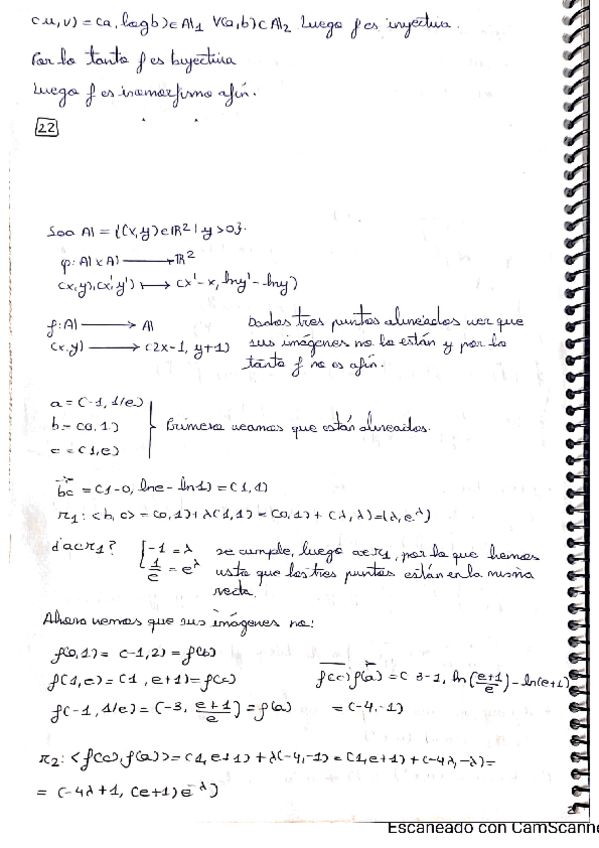 (u,v) = (a, log b) ∈ A1 ∀(a,b) ⊂ A2 Luego f es inyectiva.
Por lo tanto f es biyectiva
Luego f es isomorfismo afín.
22
Sea A = {(x,y) ∈ ℝ² | y > 0}.
φ: A × A ⟶ ℝ²
(x,y),(x',y') ⟼ (x'-x, ln y' - ln y)
f: A ⟶ A
(x,y) ⟶ (2x-1, y+1)
Dados tres puntos alineados ver que
sus imágenes no lo están y por lo
tanto f no es afín.
a = (-1, 1/e)
b = (0,1)
c = (1,e)
Primero veamos que están alineados.
bc = (1-0, ln e - ln 1) = (1,1)
r1: <b,c> = (0,1) + λ(1,1) = (0,1) + (λ,λ) = (λ, e^λ)
¿a ∈ r1? { -1 = λ
1/e = e^λ
se cumple, luego a ∈ r1, por lo que hemos
visto que los tres puntos están en la misma
recta.
Ahora vemos que sus imágenes no:
f(0,1) = (-1,2) = f(b)
f(1,e) = (1, e+1) = f(c)
f(-1, 1/e) = (-3, (e+1)/e) = f(a)
f(c)f(a) = (-3-1, ln((e+1)/e) - ln(e+1))
= (-4,-1)
r2: <f(c), f(a)> = (1, e+1) + λ(-4,-1) = (1, e+1) + (-4λ, -λ) =
= (-4λ+1, (e+1)e^-λ)
2
Escaneado con CamScanne